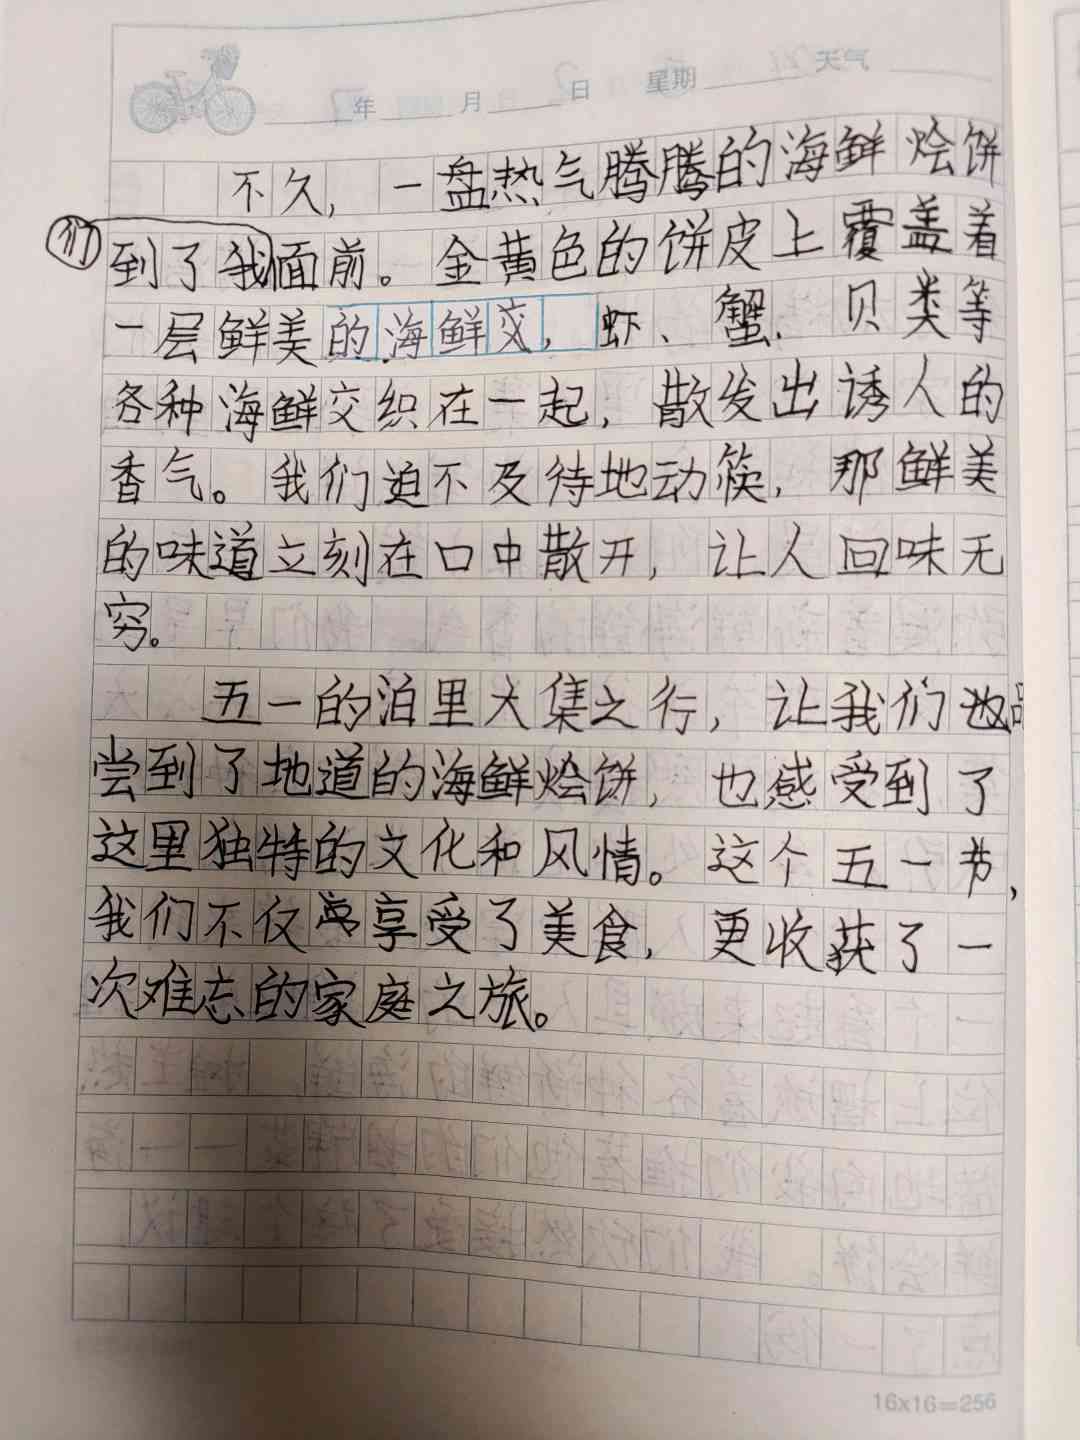 年 月 日 星期 天气
不久，一盘热气腾腾的海鲜烩饼
到了我们面前。金黄色的饼皮上覆盖着
一层鲜美的海鲜交，虾、蟹、贝类等
各种海鲜交织在一起，散发出诱人的
香气。我们迫不及待地动筷，那鲜美
的味道立刻在口中散开，让人回味无
穷。
五一的泊里大集之行，让我们品
尝到了地道的海鲜烩饼，也感受到了
这里独特的文化和风情。这个五一节，
我们不仅享受了美食，更收获了一
次难忘的家庭之旅。
16x16=256